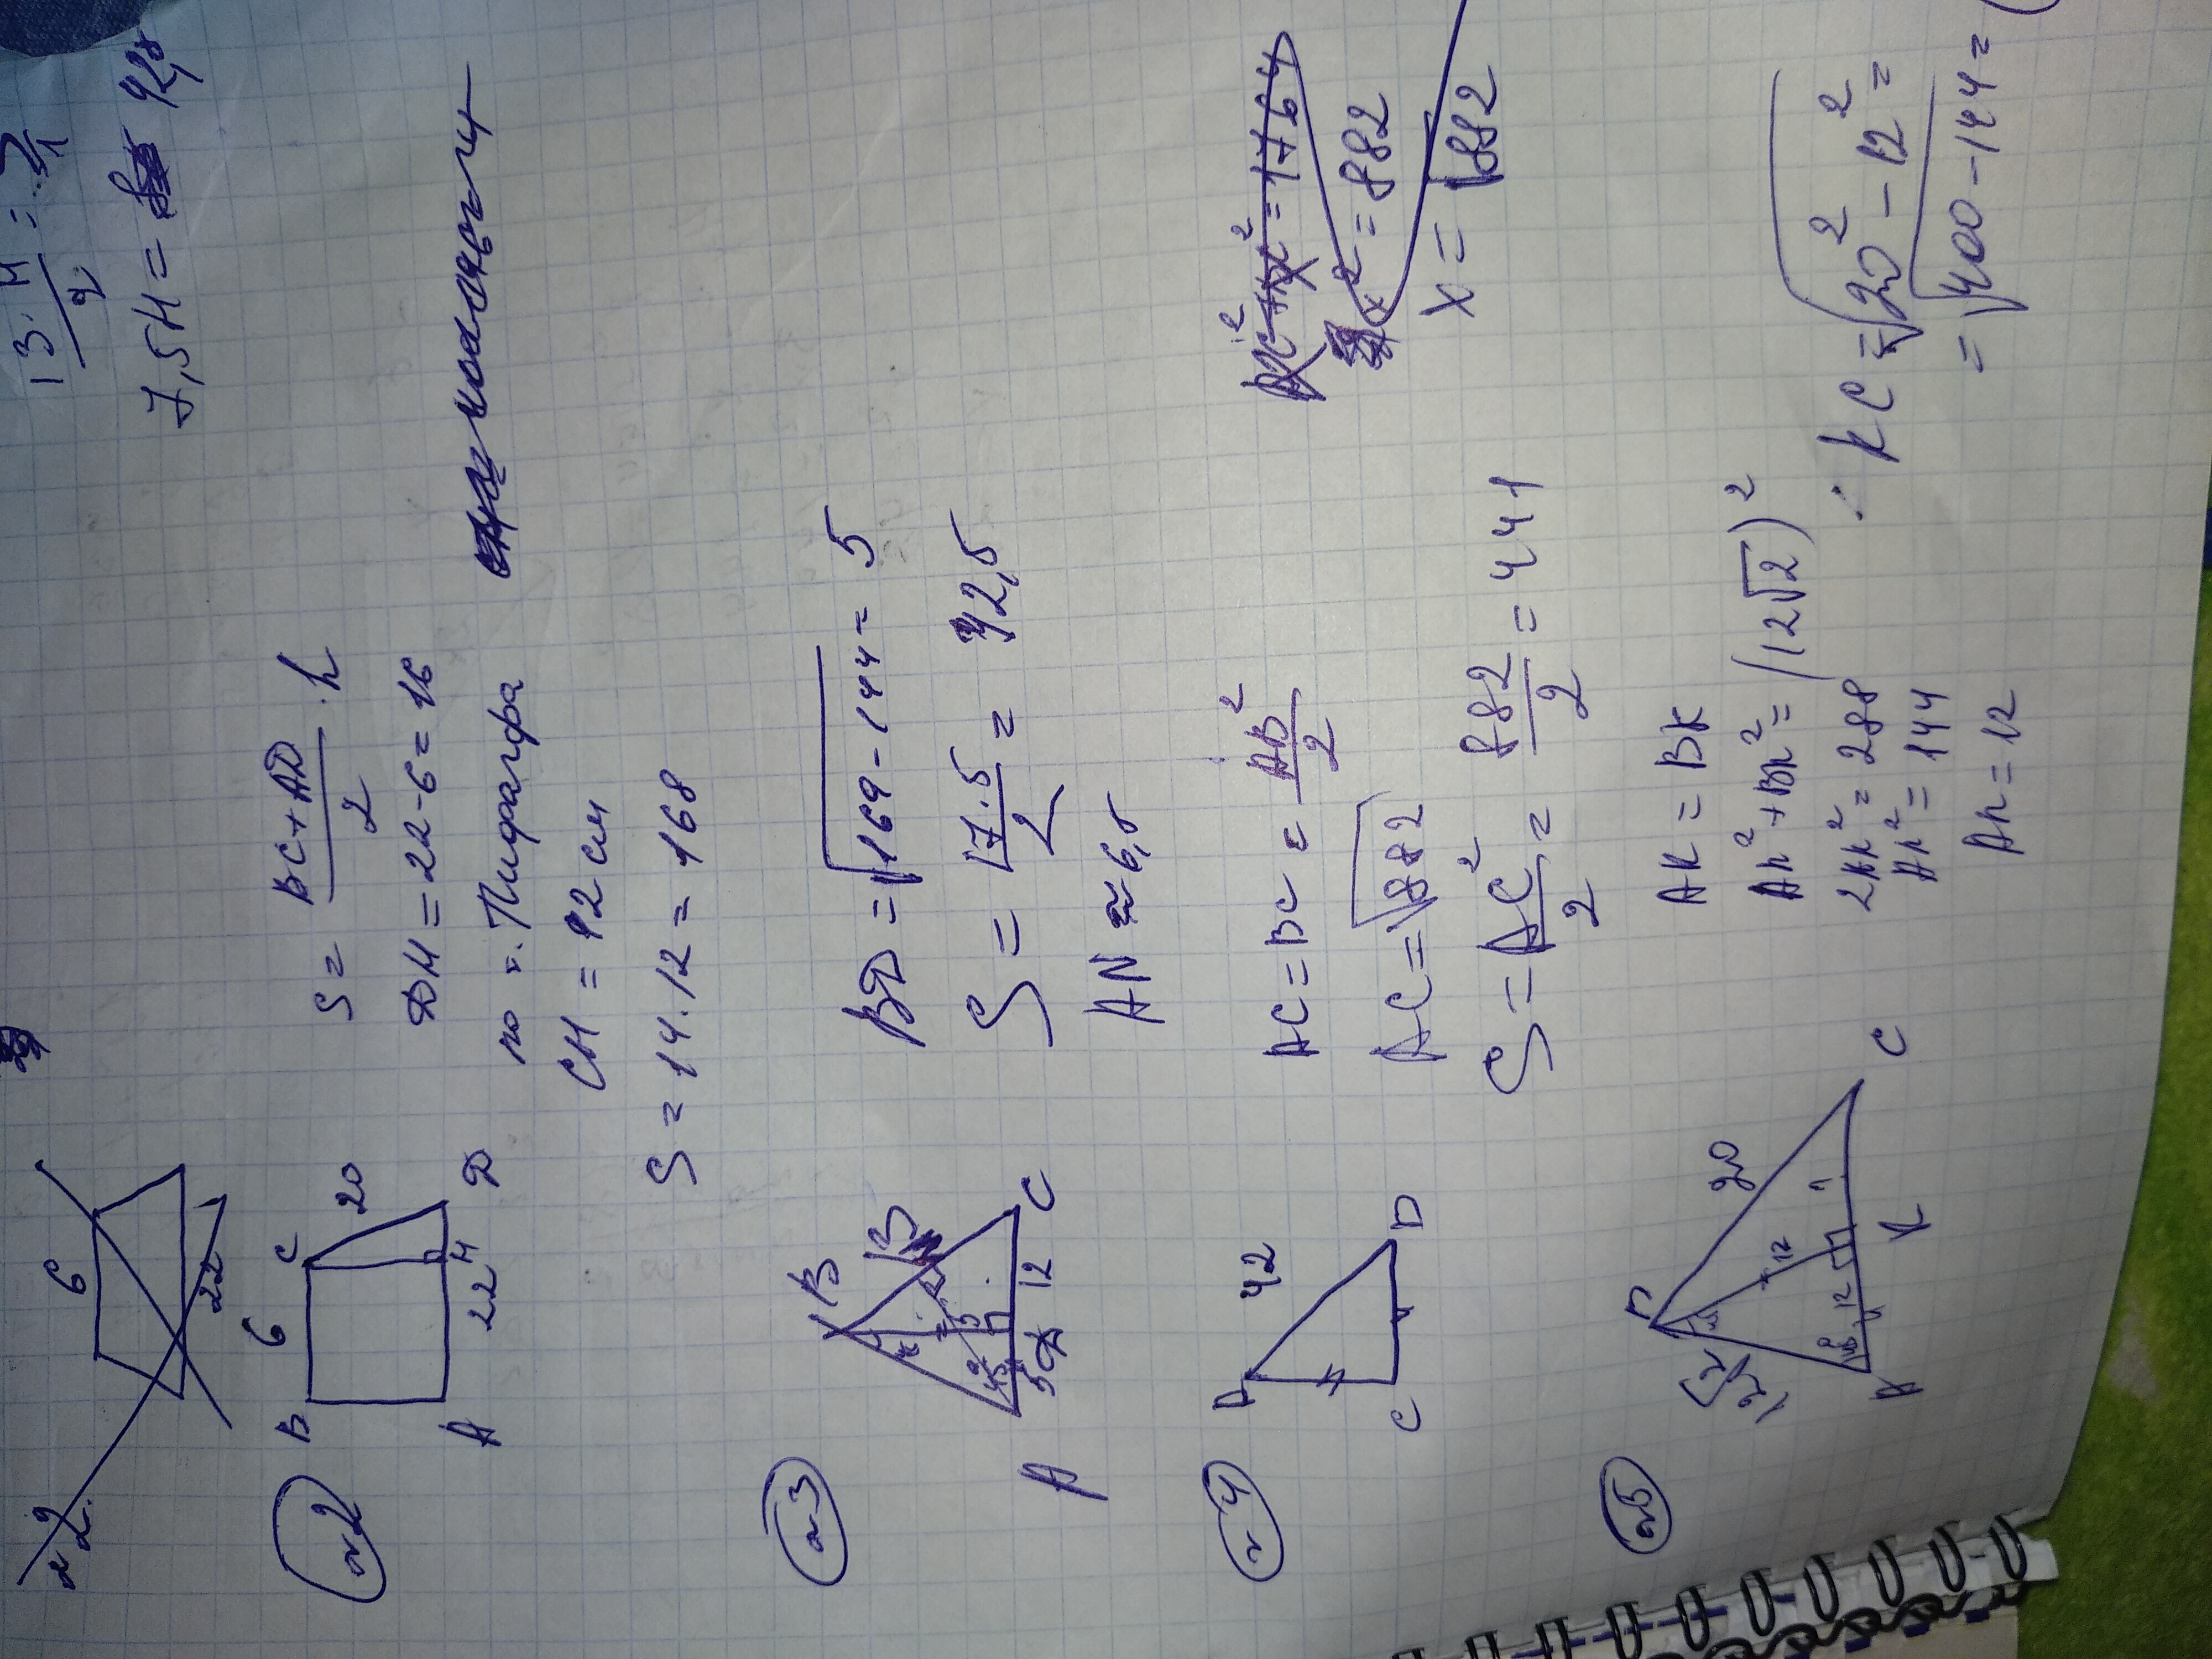 13·H
2
7,5H = 42,5
6
22
№2
B 6 C
20
A 22 H D
S = BC+AD / 2 · h
DH = 22-6=16
по т. Пифагора
CH = 12 см
S = 14·12 = 168
№3
B
13
5
A 5 D 12 C
BD = √169-144 = 5
S = 17·5 / 2 = 42,5
AN ≈ 6,5
№4
42
C
AC = BC = AB² / 2
AC = √882
S = AC² / 2 = 882 / 2 = 441
x² = 882
x = √882
№5
20
12√2
12
12
A K C
AK = BK
AK²+BK² = (12√2)²
2AK² = 288
AK² = 144
AK = 12
KC = √20²-12² =
= √400-144 =